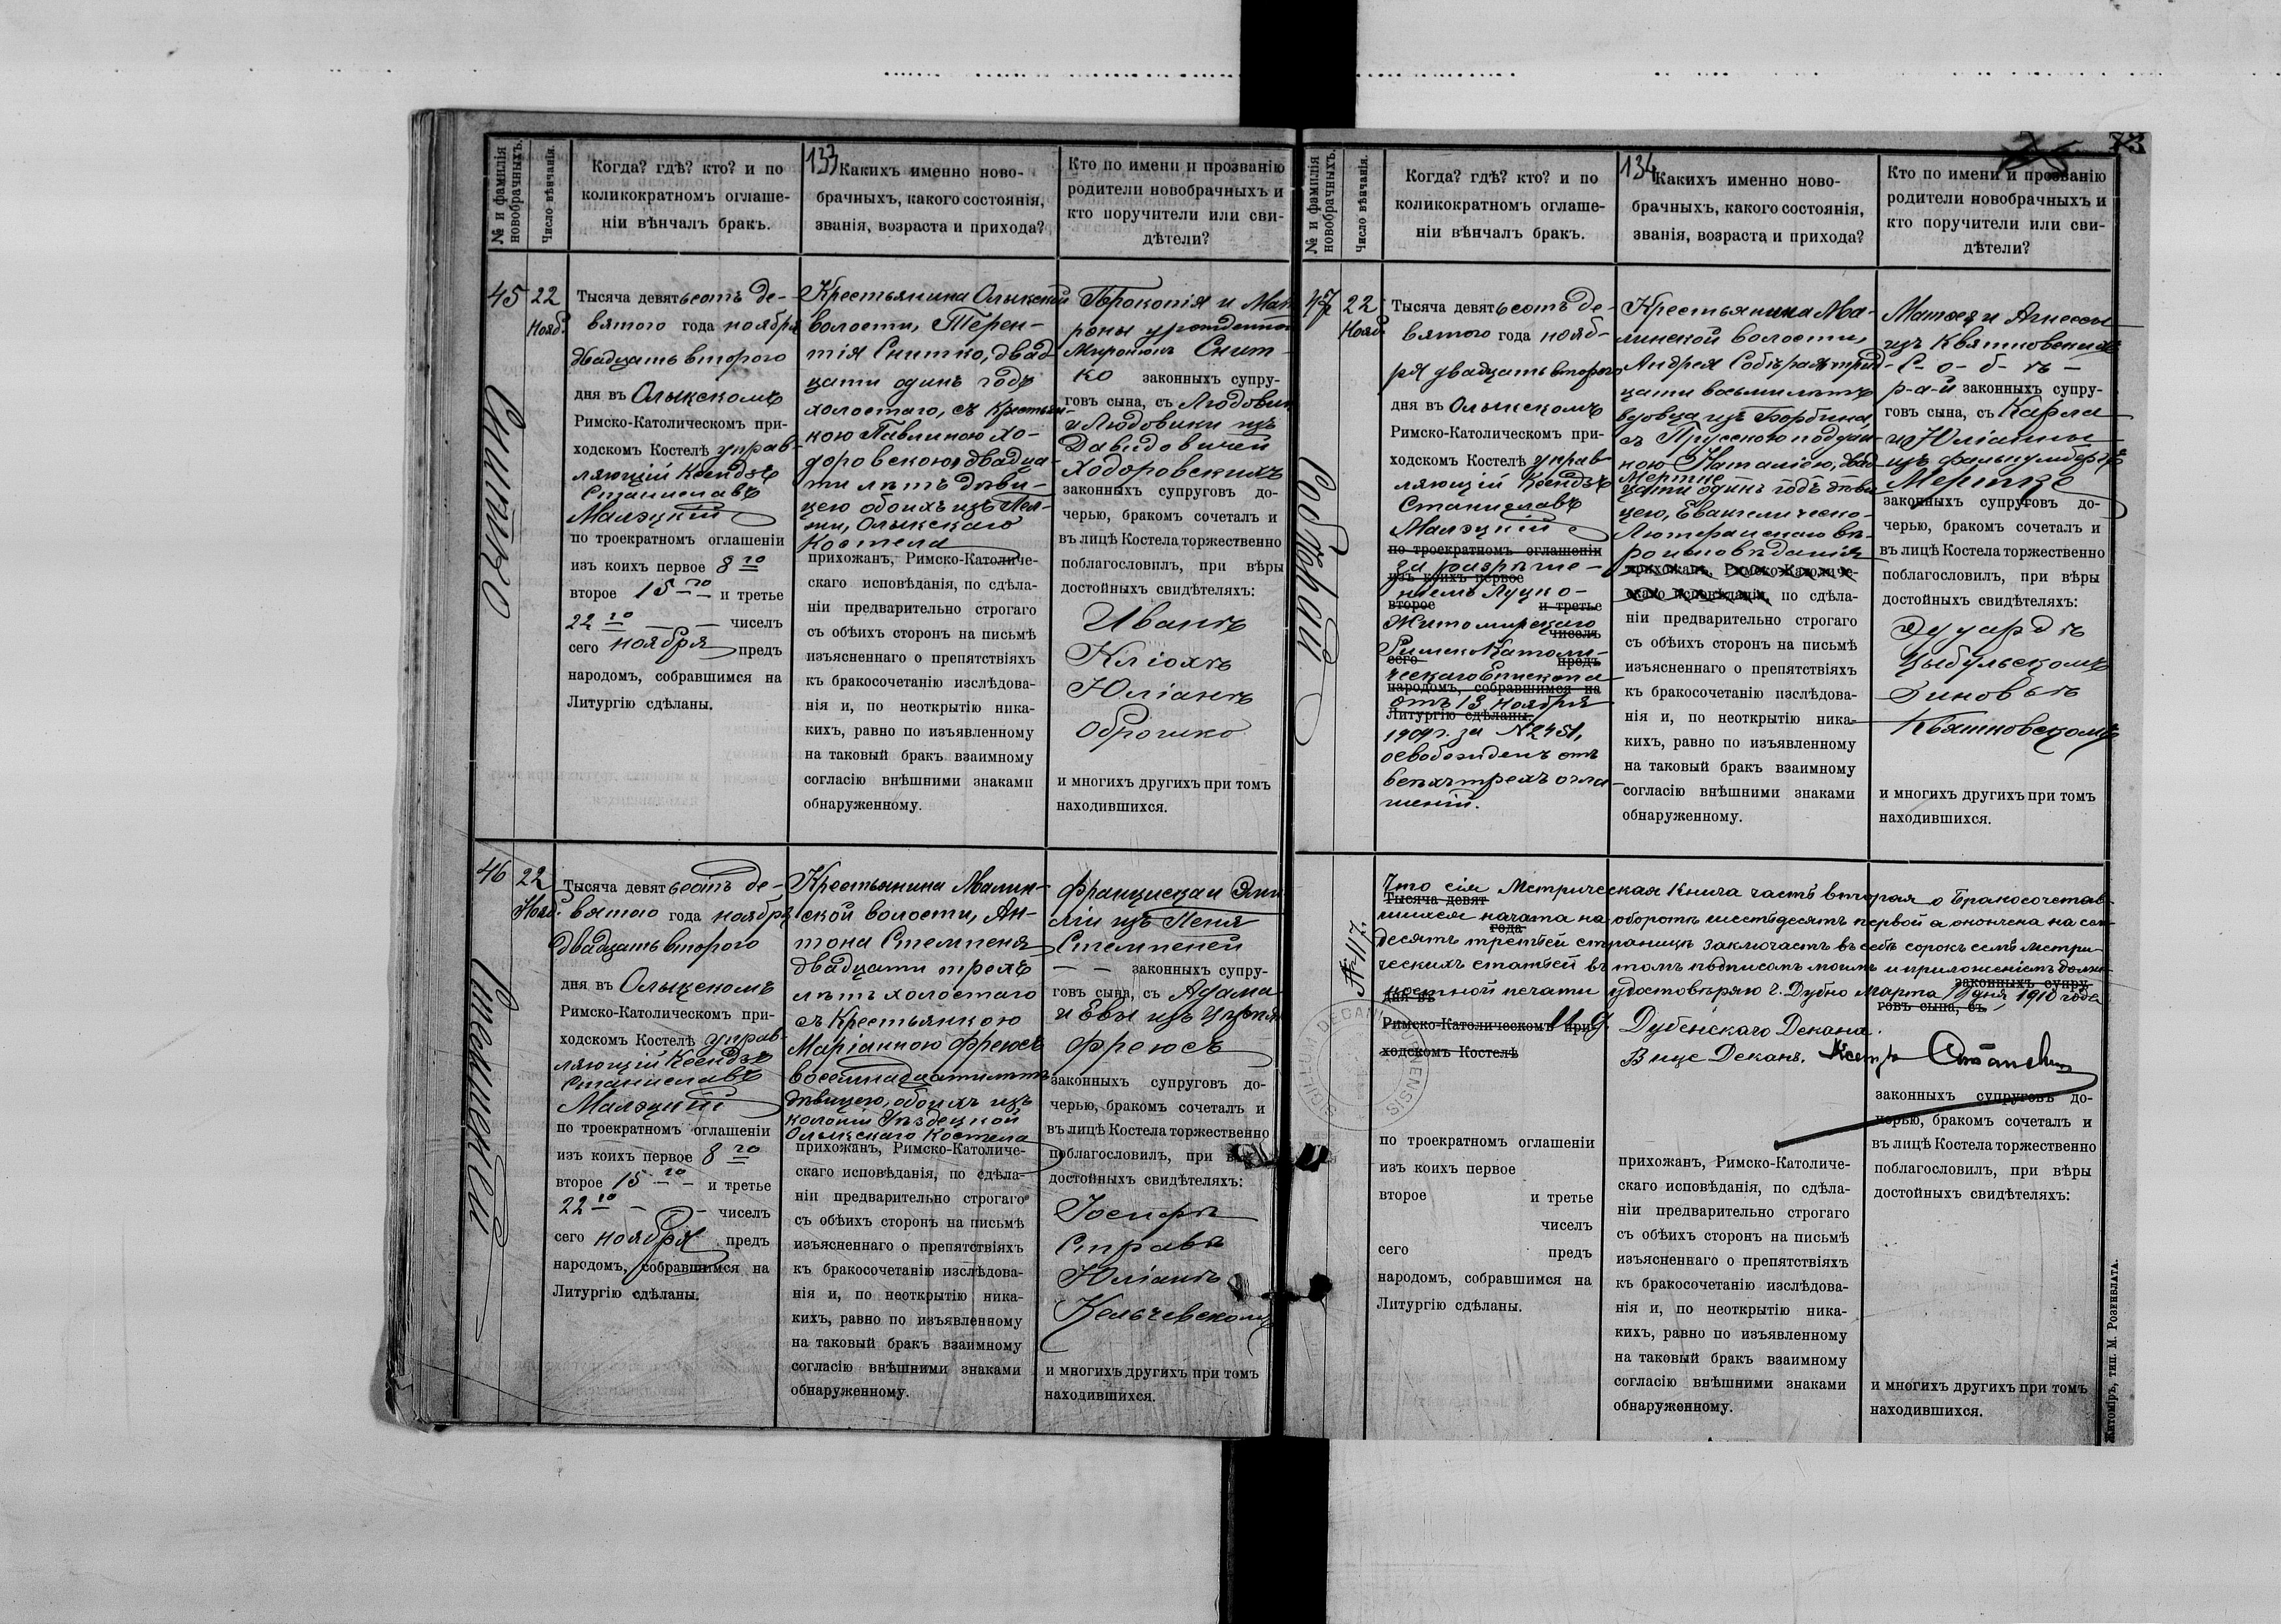 133
№ и фамилія новобрачныхъ.
Число вѣнчанія.
Когда? гдѣ? кто? и по
коликократномъ оглаше-
ніи вѣнчалъ бракъ.
Какихъ именно ново-
брачныхъ, какого состоянія,
званія, возраста и прихода?
Кто по имени и прозванію
родители новобрачныхъ и
кто поручители или сви-
дѣтели?
45
Снитко
22
Нояб.
Тысяча девятьсотъ де-
вятого года ноября
двадцать второго
дня въ Олыкскомъ
Римско-Католическомъ при-
ходскомъ Костелѣ управ-
ляющій Ксендзъ
Станиславъ
Малэцкій
по троекратномъ оглашеніи
изъ коихъ первое 8го
второе 15го и третье
22го чиселъ
сего ноября предъ
народомъ, собравшимся на
Литургію сдѣланы.
Крестьянина Олыкской
волости, Терен-
тія Снитко, двад-
цати одинъ годъ
холостаго, съ крестьян-
кою Павлиною Хо-
доровскою двадца-
ти лѣтъ дѣви-
цею обоихъ изъ
Олыкскаго
Костела
прихожанъ, Римско-Католиче-
скаго исповѣданія, по сдѣла-
ніи предварительно строгаго
съ обѣихъ сторонъ на письмѣ
изъясненнаго о препятствіяхъ
къ бракосочетанію изслѣдова-
нія и, по неоткрытію ника-
кихъ, равно по изъявленному
на таковый бракъ взаимному
согласію внѣшними знаками
обнаруженному.
Прокопія и Мат-
роны урожденной
Миронюкъ Снит-
ко законныхъ супру-
говъ сына, съ Людовик
и Людовики изъ
Давидовичей
Ходоровскихъ
законныхъ супруговъ до-
черью, бракомъ сочеталъ и
въ лицѣ Костела торжественно
поблагословилъ, при вѣры
достойныхъ свидѣтеляхъ:
Иванъ
Кліохъ
Юліанъ
Оброшко
и многихъ другихъ при томъ
находившихся.
46
Стемпень
22
Нояб.
Тысяча девятьсотъ де-
вятого года ноября
двадцать второго
дня въ Олыцкомъ
Римско-Католическомъ при-
ходскомъ Костелѣ управ-
ляющій Ксендзъ
Станиславъ
Малэцкій
по троекратномъ оглашеніи
изъ коихъ первое 8го
второе 15го и третье
22го чиселъ
сего ноября предъ
народомъ, собравшимся на
Литургію сдѣланы.
Крестьянина Малин-
ской волости, Ан-
тона Стемпеня
двадцати трехъ
лѣтъ холостаго
съ Крестьянкою
Маріанною Фреюсъ
восемнадцати лѣтъ
дѣвицею, обоихъ изъ
колоніи
Олыкскаго Костела
прихожанъ, Римско-Католиче-
скаго исповѣданія, по сдѣла-
ніи предварительно строгаго
съ обѣихъ сторонъ на письмѣ
изъясненнаго о препятствіяхъ
къ бракосочетанію изслѣдова-
нія и, по неоткрытію ника-
кихъ, равно по изъявленному
на таковый бракъ взаимному
согласію внѣшними знаками
обнаруженному.
Франциска и Эми
ліи изъ
Стемпеней
законныхъ супру-
говъ сына, съ Адама
и Евы изъ
Фреюсъ
законныхъ супруговъ до-
черью, бракомъ сочеталъ и
въ лицѣ Костела торжественно
поблагословилъ, при
достойныхъ свидѣтеляхъ:
Іосифъ
Справа
Юліанъ
Кельчевскомъ
и многихъ другихъ при томъ
находившихся.
73
134
№ и фамилія новобрачныхъ.
Число вѣнчанія.
Когда? гдѣ? кто? и по
коликократномъ оглаше-
ніи вѣнчалъ бракъ.
Какихъ именно ново-
брачныхъ, какого состоянія,
званія, возраста и прихода?
Кто по имени и прозванію
родители новобрачныхъ и
кто поручители или сви-
дѣтели?
47
Собѣрай
22
Нояб.
Тысяча девятьсотъ де-
вятого года нояб-
ря двадцать второго
дня въ Олыкскомъ
Римско-Католическомъ при-
ходскомъ Костелѣ управ-
ляющій Ксендзъ
Станиславъ
Малэцкій
по троекратномъ оглашеніи
за разрѣше-
изъ коихъ первое
ніемъ Луцко-
второе и третье
Житомирскаго
чиселъ
Римско Католи-
сего предъ
ческаго Епископа
народомъ, собравшимся на
отъ 13 Ноября
Литургію сдѣланы.
1909 г. за № 2451,
освобожденъ отъ
всѣхъ трехъ огла-
шеній.
Крестьянина Ма-
линской волости,
Андрея Собѣрая трид-
цати восьми лѣтъ
вдовца изъ Борбина,
съ Прусскою поддан-
ною Наталіею, двад-
Мертке
цати одинъ годъ дѣви
цею, Евангелическо-
Лютеранскаго вѣ-
роисповѣданія
прихожанъ, Римско-Католиче-
скаго исповѣданія, по сдѣла-
ніи предварительно строгаго
съ обѣихъ сторонъ на письмѣ
изъясненнаго о препятствіяхъ
къ бракосочетанію изслѣдова-
нія и, по неоткрытію ника-
кихъ, равно по изъявленному
на таковый бракъ взаимному
согласію внѣшними знаками
обнаруженному.
Матвея и Агнессы
изъ Квятковскихъ
С-о-б-ѣ-
р-а-й законныхъ супру-
говъ сына, съ Карла
и Юліанны
изъ
законныхъ супруговъ до-
черью, бракомъ сочеталъ и
въ лицѣ Костела торжественно
поблагословилъ, при вѣры
достойныхъ свидѣтеляхъ:
Эдуардъ
Цыбульскомъ
Зиновъ
Квятковскомъ
и многихъ другихъ при томъ
находившихся.
№ 117.
Что сія Метрическая Книга часть вторая о Бракосочетав-
Тысяча девят
шихся начата на оборотѣ шестьдесятъ первой а окончена на сем-
года
десятъ третьей страницѣ заключаетъ въ себѣ сорокъ семь метри-
ческихъ статьей въ томъ подписомъ моимъ и приложеніемъ долж-
законныхъ супру
дня въ
ностной печати удостовѣряю г. Дубно Марта дня 1910 года
говъ сына, съ
Римско-Католическомъ при-
И. д. Дубенскаго Декана.
ходскомъ Костелѣ
Вице Деканъ.
законныхъ супруговъ до-
черью, бракомъ сочеталъ и
въ лицѣ Костела торжественно
поблагословилъ, при вѣры
достойныхъ свидѣтеляхъ:
по троекратномъ оглашеніи
изъ коихъ первое
второе и третье
чиселъ
сего предъ
народомъ, собравшимся на
Литургію сдѣланы.
прихожанъ, Римско-Католиче-
скаго исповѣданія, по сдѣла-
ніи предварительно строгаго
съ обѣихъ сторонъ на письмѣ
изъясненнаго о препятствіяхъ
къ бракосочетанію изслѣдова-
нія и, по неоткрытію ника-
кихъ, равно по изъявленному
на таковый бракъ взаимному
согласію внѣшними знаками
обнаруженному.
и многихъ другихъ при томъ
находившихся.
Житоміръ, тип. М. Розенблата.